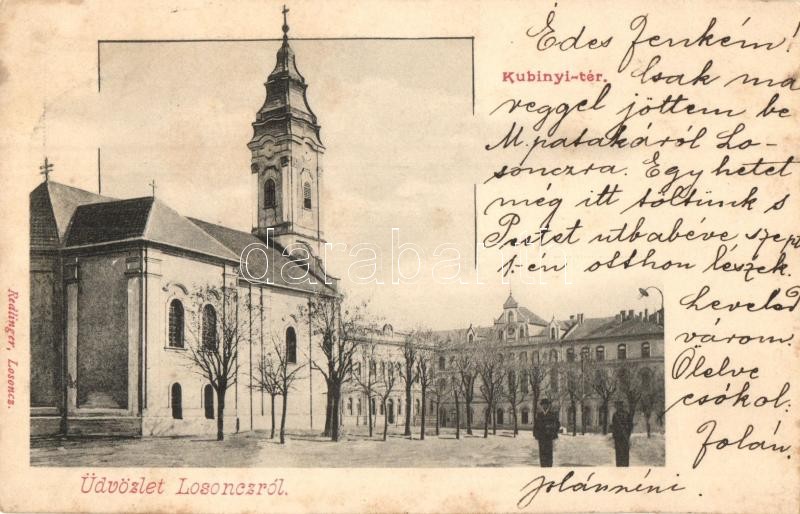 Édes Jenkém!
Kubinyi-tér.
Csak ma
reggel jöttem be
M. patakáról Lo-
sonczra. Egy hetet
még itt töltünk s
Pestet utbaéve szept
1.-én otthon leszek.
Leveled
várom.
Ölelve
csókol:
Jolán.
Jolánnéni
darabanth
Redlinger, Losoncz.
Üdvözlet Losonczról.